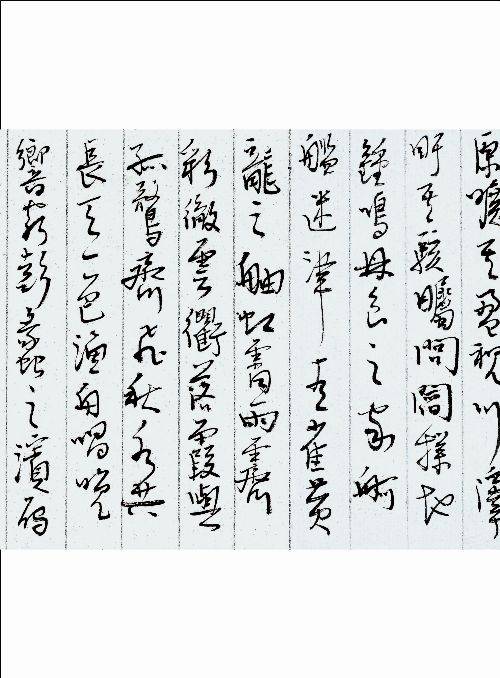 原曠其盈視川澤
盱其駭矚閭閻撲地
鍾鳴鼎食之家舸
艦迷津青雀黃
龍之舳虹霄雨霽
彩徹雲衢落霞與
孤鶩齊飛秋水共
長天一色漁舟唱晚
響窮彭蠡之濱雁